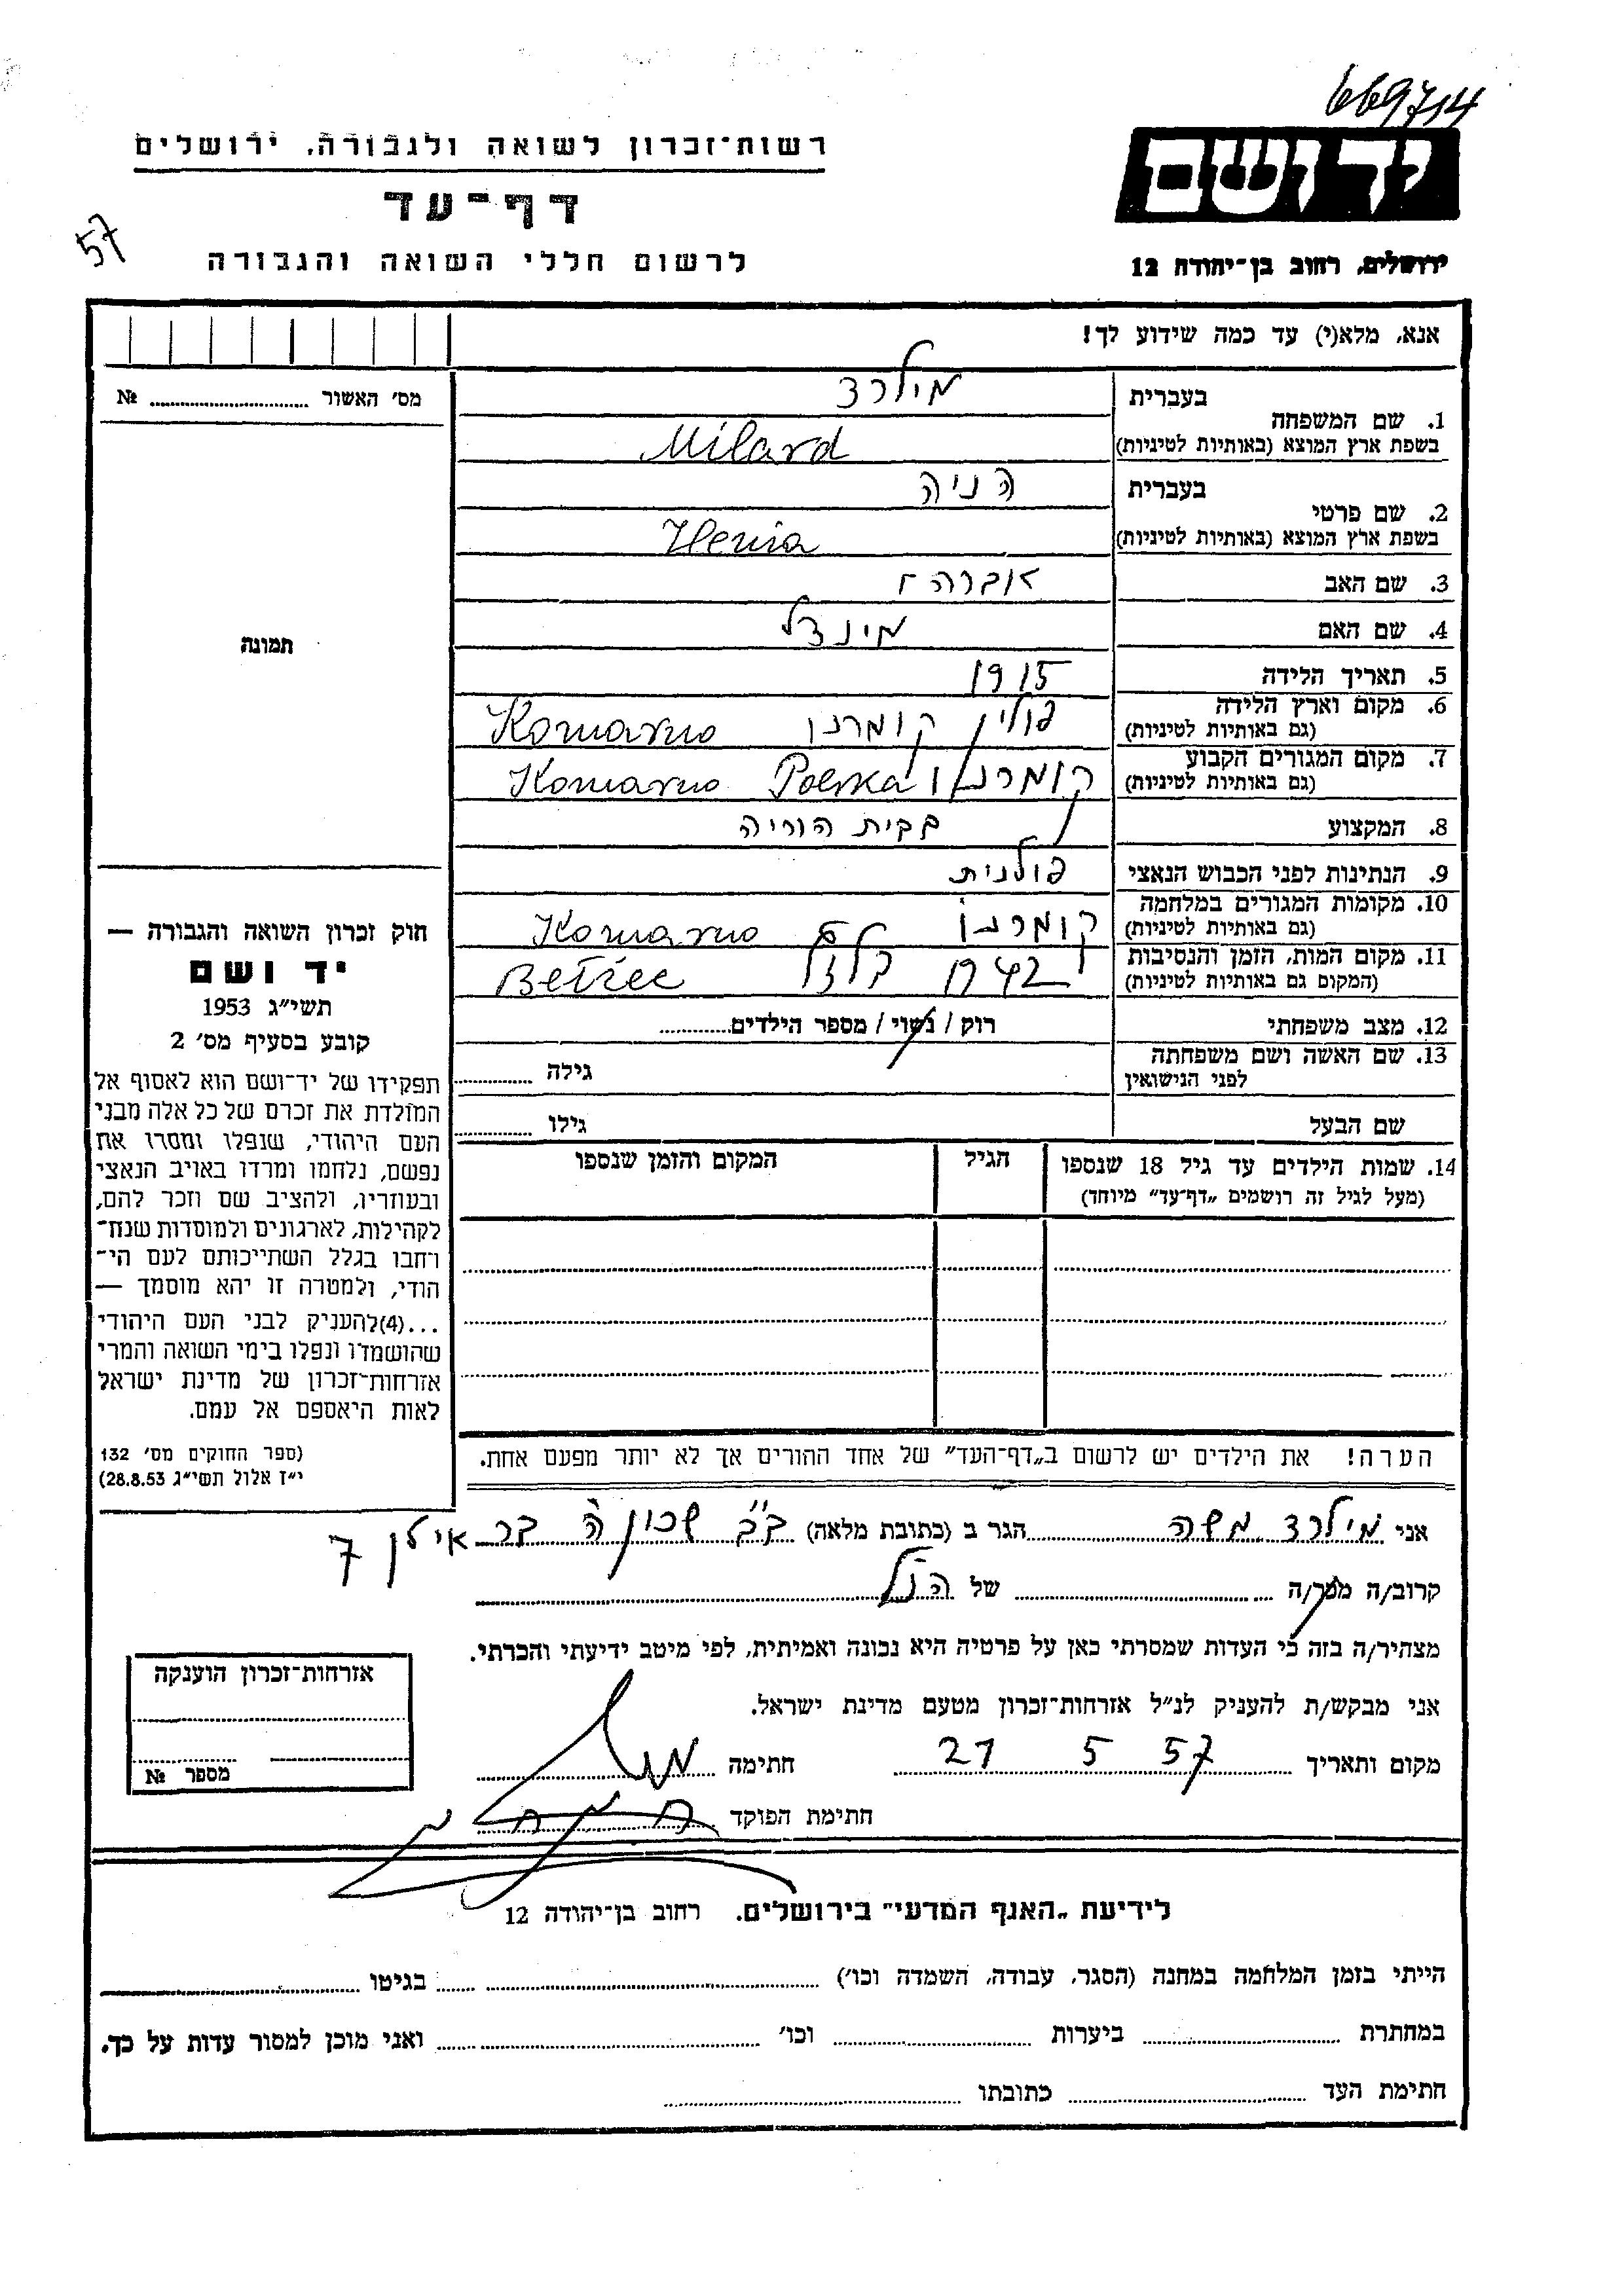 669714
יד ושם
ירושלים, רחוב בן־יהודה 12
רשות־זכרון לשואה ולגבורה, ירושלים
דף־עד
לרשום חללי השואה והגבורה
57
אנא, מלא(י) עד כמה שידוע לך!
1. שם המשפחה
בעברית מילרד
בשפת ארץ המוצא (באותיות לטיניות) Milard
2. שם פרטי
בעברית הניה
בשפת ארץ המוצא (באותיות לטיניות) Henia
3. שם האב אברהם
4. שם האם מינדל
5. תאריך הלידה 1915
6. מקום וארץ הלידה פולין קומרנו Komarno
(גם באותיות לטיניות)
7. מקום המגורים הקבוע קומרנו Polska Komarno
(גם באותיות לטיניות)
8. המקצוע בבית הוריה
9. הנתינות לפני הכבוש הנאצי פולנית
10. מקומות המגורים במלחמה קומרנו Komarno
(גם באותיות לטיניות)
11. מקום המות, הזמן והנסיבות 1942 בלזץ Bełżec
(המקום גם באותיות לטיניות)
12. מצב משפחתי רוק / נשוי / מספר הילדים
13. שם האשה ושם משפחתה גילה
לפני הנישואין
שם הבעל גילו
14. שמות הילדים עד גיל 18 שנספו הגיל המקום והזמן שנספו
(מעל לגיל זה רושמים „דף־עד" מיוחד)
הערה! את הילדים יש לרשום ב„דף־העד" של אחד ההורים אך לא יותר מפעם אחת.
מס׳ האשור №
תמונה
חוק זכרון השואה והגבורה —
יד ושם
תשי״ג 1953
קובע בסעיף מס׳ 2
תפקידו של יד־ושם הוא לאסוף אל
המולדת את זכרם של כל אלה מבני
העם היהודי, שנפלו ומסרו את
נפשם, נלחמו ומרדו באויב הנאצי
ובעוזריו, ולהציב שם וזכר להם,
לקהילות, לארגונים ולמוסדות שנח־
רחבו בגלל השתייכותם לעם הי־
הודי, ולמטרה זו יהא מוסמך —
...(4)להעניק לבני העם היהודי
שהושמדו ונפלו בימי השואה והמרי
אזרחות־זכרון של מדינת ישראל
לאות היאספם אל עמם.
(ספר החוקים מס׳ 132
י״ז אלול תשי״ג 28.8.53)
אני מילרד משה הגר ב (כתובת מלאה) ב״ב שכון ה׳ בר אילן 7
קרוב/ה מכר/ה של הנ״ל
מצהיר/ה בזה כי העדות שמסרתי כאן על פרטיה היא נכונה ואמיתית, לפי מיטב ידיעתי והכרתי.
אני מבקש/ת להעניק לנ״ל אזרחות־זכרון מטעם מדינת ישראל.
מקום ותאריך 21 5 57 חתימה
חתימת הפוקד
אזרחות־זכרון הוענקה
מספר №
לידיעת „האגף המדעי" בירושלים. רחוב בן־יהודה 12
הייתי בזמן המלחמה במחנה (הסגר, עבודה, השמדה וכו׳) בגיטו
במחתרת ביערות וכו׳ ואני מוכן למסור עדות על כך.
חתימת העד כתובתו